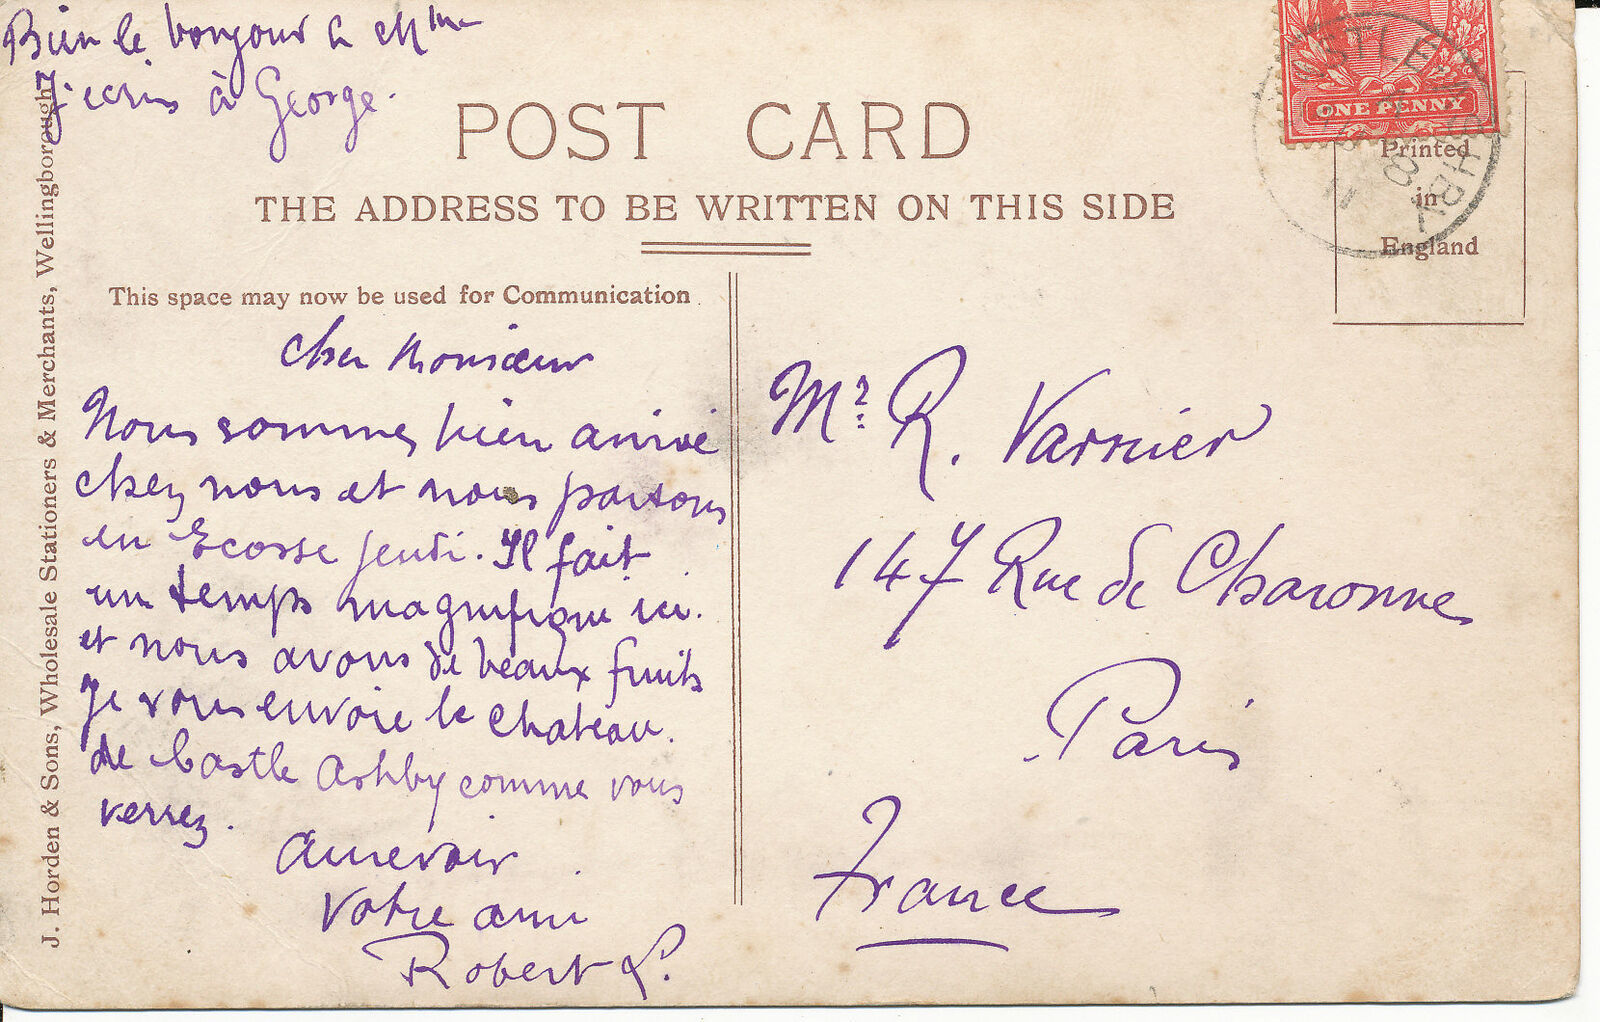 Bien le bonjour à Mme
J'ecris à George.
POST CARD
THE ADDRESS TO BE WRITTEN ON THIS SIDE
ONE PENNY
Printed
in
England
This space may now be used for Communication
cher Monsieur
Nous sommes bien arrivé
chez nous et nous partons
en Ecosse jeudi. Il fait
un temps magnifique ici.
et nous avons de beaux fruits
Je vous envoie le chateau.
de Castle Ashby comme vous
verrez.
Aurevoir
Votre ami
Robert L.
Mr. R. Varnier
147 Rue de Charonne
Paris
France
J. Horden & Sons, Wholesale Stationers & Merchants, Wellingborough